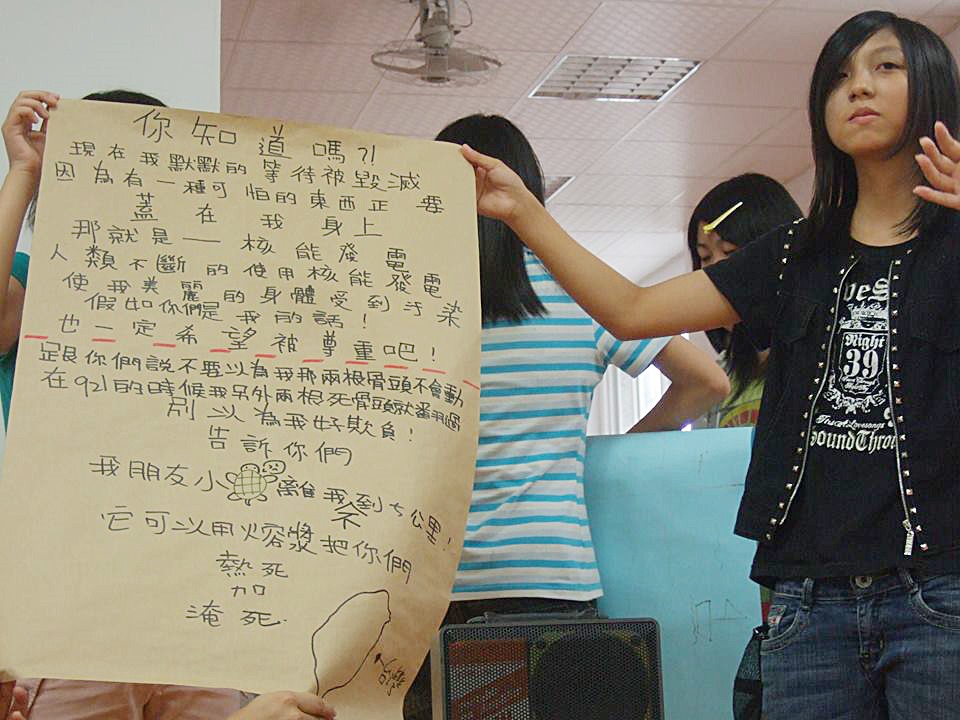 你知道嗎?!
現在我默默的等待被毀滅
因為有一種可怕的東西正要
蓋在我身上
那就是——核能發電
人類不斷的使用核能發電
使我美麗的身體受到汙染
假如你們是我的話!
也一定希望被尊重吧!
跟你們說不要以為我那兩根骨頭不會動
在921的時候我另外兩根死骨頭就翻過
別以為我好欺負!
告訴你們
我朋友小離我不到5公里!
它可以用火熔漿把你們
熱死
加
淹死.
台灣
Night
39
Lovesongs
oundThro